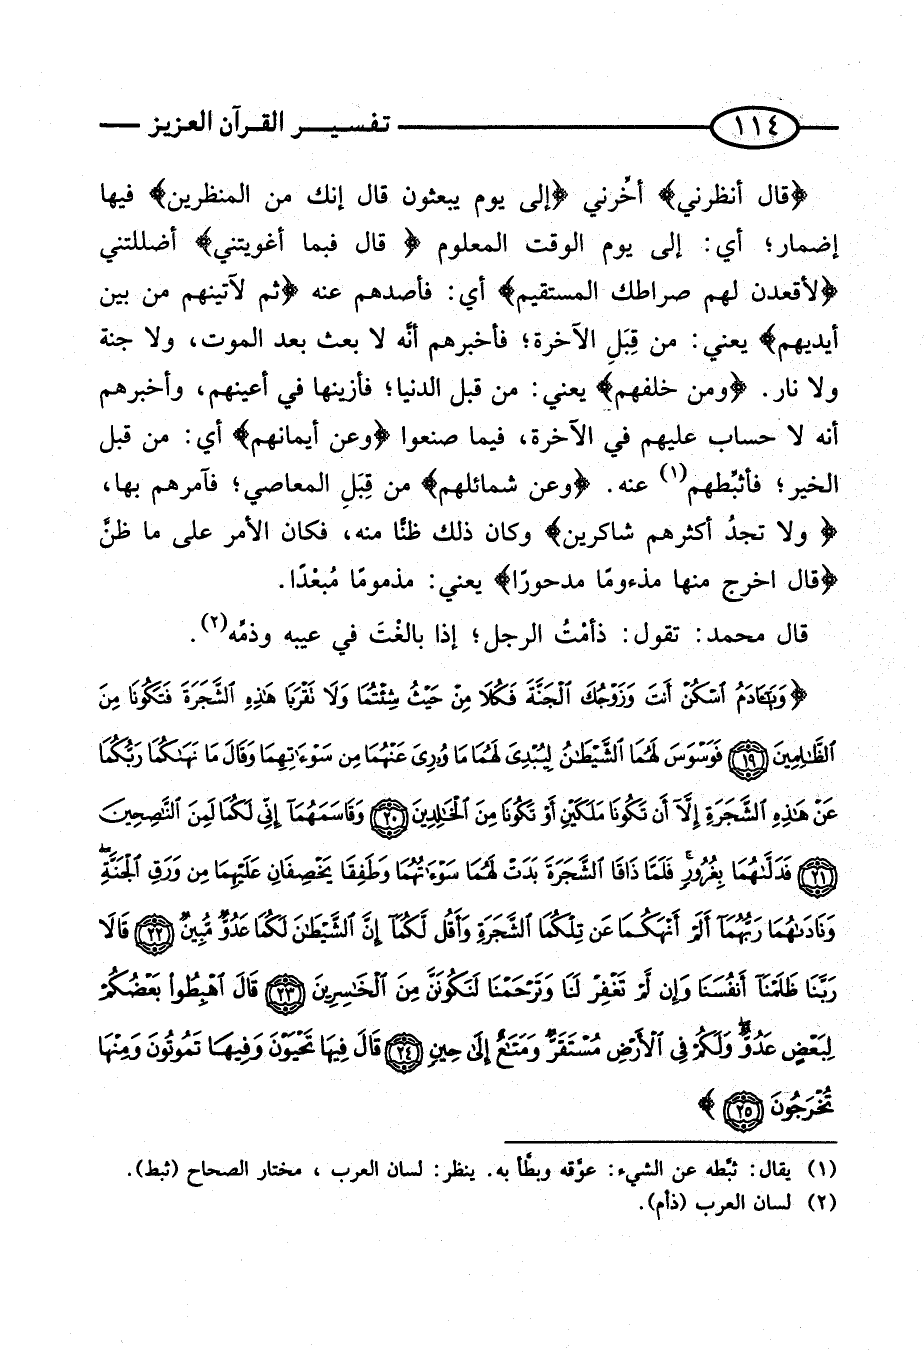 ١١٤ تفسير القرآن العزيز
﴿قال أنظرني﴾ أخِّرني ﴿إلى يوم يبعثون قال إنك من المنظرين﴾ فيها
إضمار؛ أي: إلى يوم الوقت المعلوم ﴿ قال فبما أغويتني﴾ أضللتني
﴿لأقعدن لهم صراطك المستقيم﴾ أي: فأصدهم عنه ﴿ثم لآتينهم من بين
أيديهم﴾ يعني: من قِبَلِ الآخرة؛ فأخبرهم أنَّه لا بعث بعد الموت، ولا جنة
ولا نار. ﴿ومن خلفهم﴾ يعني: من قبل الدنيا؛ فأزينها في أعينهم، وأخبرهم
أنه لا حساب عليهم في الآخرة، فيما صنعوا ﴿وعن أيمانهم﴾ أي: من قبل
الخير؛ فأثبِّطهم(١) عنه. ﴿وعن شمائلهم﴾ من قِبَلِ المعاصي؛ فآمرهم بها،
﴿ ولا تجدُ أكثرهم شاكرين﴾ وكان ذلك ظنًّا منه، فكان الأمر على ما ظنَّ
﴿قال اخرج منها مذءومًا مدحورًا﴾ يعني: مذمومًا مُبعْدًا.
قال محمد: تقول: ذأمْتُ الرجل؛ إذا بالغْتَ في عيبه وذمِّه(٢).
﴿وَيَـٰٓـَٔادَمُ ٱسْكُنْ أَنتَ وَزَوْجُكَ ٱلْجَنَّةَ فَكُلَا مِنْ حَيْثُ شِئْتُمَا وَلَا تَقْرَبَا هَـٰذِهِ ٱلشَّجَرَةَ فَتَكُونَا مِنَ
ٱلظَّـٰلِمِينَ ١٩ فَوَسْوَسَ لَهُمَا ٱلشَّيْطَـٰنُ لِيُبْدِىَ لَهُمَا مَا وُۥرِىَ عَنْهُمَا مِن سَوْءَٰتِهِمَا وَقَالَ مَا نَهَىٰكُمَا رَبُّكُمَا
عَنْ هَـٰذِهِ ٱلشَّجَرَةِ إِلَّآ أَن تَكُونَا مَلَكَيْنِ أَوْ تَكُونَا مِنَ ٱلْخَـٰلِدِينَ ٢٠ وَقَاسَمَهُمَآ إِنِّى لَكُمَا لَمِنَ ٱلنَّـٰصِحِينَ
٢١ فَدَلَّىٰهُمَا بِغُرُورٍ ۚ فَلَمَّا ذَاقَا ٱلشَّجَرَةَ بَدَتْ لَهُمَا سَوْءَٰتُهُمَا وَطَفِقَا يَخْصِفَانِ عَلَيْهِمَا مِن وَرَقِ ٱلْجَنَّةِ ۖ
وَنَادَىٰهُمَا رَبُّهُمَآ أَلَمْ أَنْهَكُمَا عَن تِلْكُمَا ٱلشَّجَرَةِ وَأَقُل لَّكُمَآ إِنَّ ٱلشَّيْطَـٰنَ لَكُمَا عَدُوٌّ مُّبِينٌ ٢٢ قَالَا
رَبَّنَا ظَلَمْنَآ أَنفُسَنَا وَإِن لَّمْ تَغْفِرْ لَنَا وَتَرْحَمْنَا لَنَكُونَنَّ مِنَ ٱلْخَـٰسِرِينَ ٢٣ قَالَ ٱهْبِطُوا۟ بَعْضُكُمْ
لِبَعْضٍ عَدُوٌّ ۖ وَلَكُمْ فِى ٱلْأَرْضِ مُسْتَقَرٌّ وَمَتَـٰعٌ إِلَىٰ حِينٍ ٢٤ قَالَ فِيهَا تَحْيَوْنَ وَفِيهَا تَمُوتُونَ وَمِنْهَا
تُخْرَجُونَ ٢٥ ﴾
(١) يقال: ثبَّطه عن الشيء: عوَّقه وبطَّأ به. ينظر: لسان العرب ، مختار الصحاح (ثبط).
(٢) لسان العرب (ذأم).